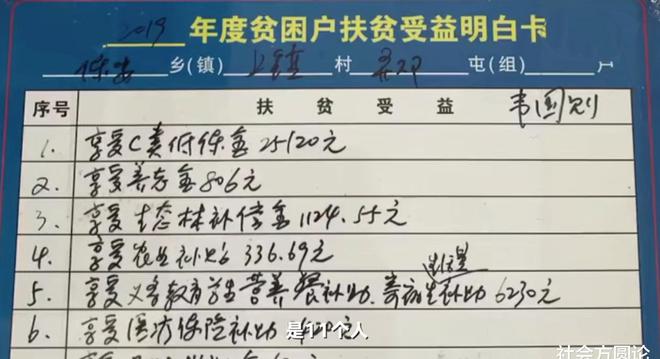 2019 年度贫困户扶贫受益明白卡
保安 乡(镇) 上镇 村 屯(组)
序号 扶贫受益 韦国刚
1. 享受C类低保金25120元
2. 享受养老金806元
3. 享受生态林补偿金1124.55元
4. 享受农业补贴336.69元
5. 享受义务教育学生营养餐补助、寄宿生补助6230元
6. 享受医疗保险补助 元
是1个人
社会方圆论